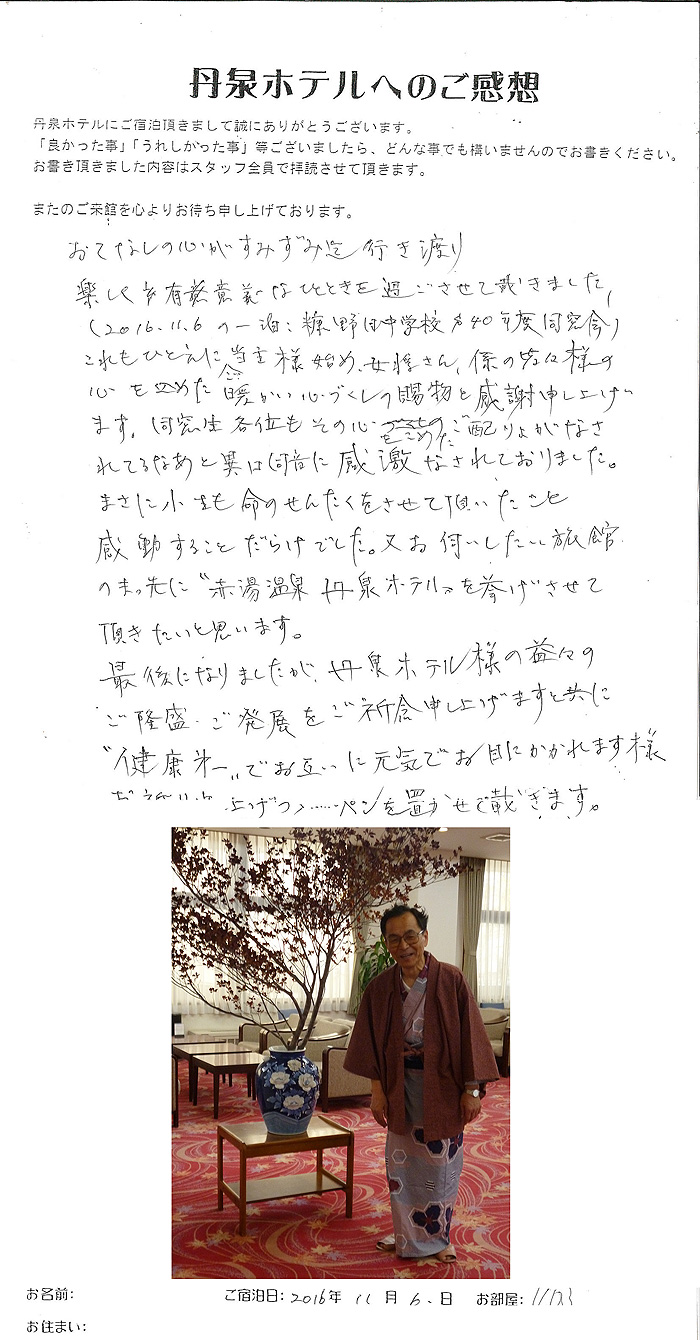 丹泉ホテルへのご感想
丹泉ホテルにご宿泊頂きまして誠にありがとうございます。
「良かった事」「うれしかった事」等ございましたら、どんな事でも構いませんのでお書きください。
お書き頂きました内容はスタッフ全員で拝読させて頂きます。
またのご来館を心よりお待ち申し上げております。
おてなしの心がすみずみ迄行き渡り
楽しく有意義なひとときを過ごさせて戴きました。
(2016.11.6の一泊:糠野目中学校 40年度同窓会)
これもひとえに当主様始め、女将さん、係の皆々様の
心を込めた暖かい心づくしの賜物と感謝申し上げ
ます。同窓生各位もその心をこめたご配りょがなさ
れてるなあと異口同音に感激なされておりました。
まさに小生も命のせんたくをさせて頂いたこと
感動することだらけでした。又お伺いしたい旅館
のまっ先に“赤湯温泉 丹泉ホテル”を挙げさせて
頂きたいと思います。
最後になりましたが、丹泉ホテル様の益々の
ご隆盛・ご発展をご祈念申し上げますと共に
“健康第一”でお互いに元気でお目にかかれます様
上げつつ……ペンを置かせて戴きます。
お名前: ご宿泊日: 2016年 11月 6日 お部屋:
お住まい: